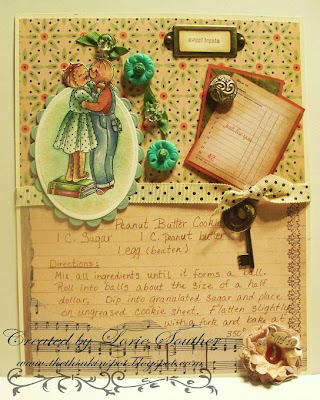 sweet treats
just for you
Peanut Butter Cookies
1 C. Sugar 1 C. peanut butter
1 egg (beaten)
Directions:
Mix all ingredients until it forms a ball.
Roll into balls about the size of a half
dollar. Dip into granulated sugar and place
on ungreased cookie sheet. Flatten slightly
with a fork and bake at
350°
Created by Lorie Souther
www.thethinkinspot.blogspot.com